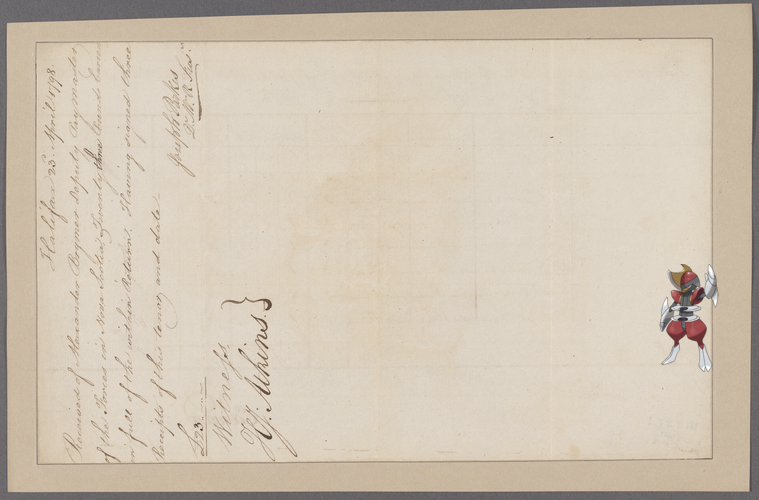 Halifax 23d. April 1798.
Received of Alexander Brymer Deputy Paymaster
of the Forces in Nova Scotia, Twenty three Pounds
in full of the within Return. Having signed three
Receipts of this tenor and date.
Joseph Bakes
£23. ...
Witness
Y. Atkins.